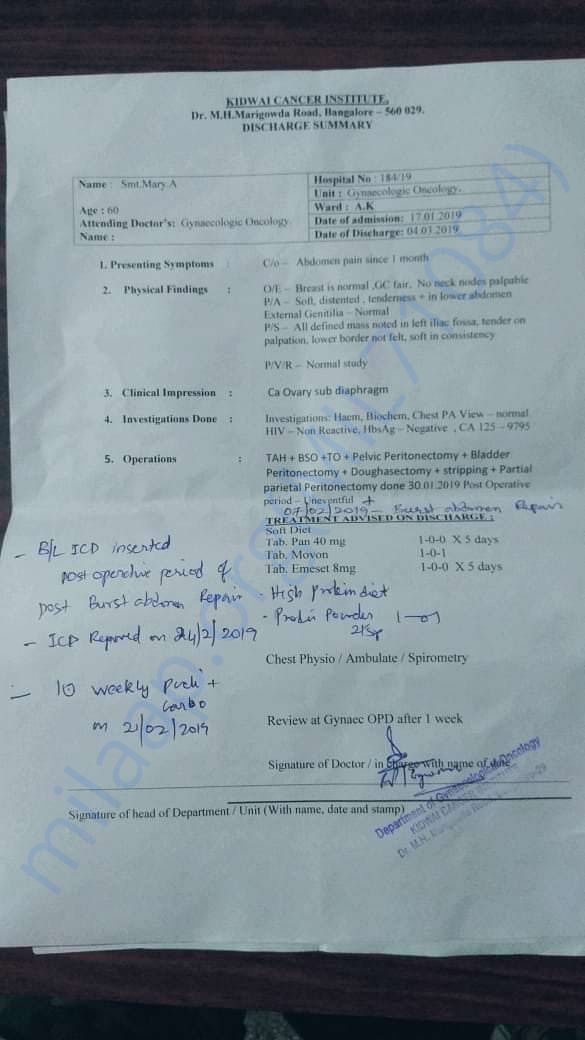 KIDWAI CANCER INSTITUTE,
Dr. M.H.Marigowda Road, Bangalore – 560 029.
DISCHARGE SUMMARY
Name : Smt.Mary.A
Age : 60
Attending Doctor's: Gynaecologic Oncology.
Name :
Hospital No : 184/19
Unit : Gynaecologic Oncology.
Ward : A.K
Date of admission: 17.01.2019
Date of Discharge: 04.03.2019
1. Presenting Symptoms : C/o – Abdomen pain since 1 month
2. Physical Findings : O/E – Breast is normal ,GC fair, No neck nodes palpable
P/A – Soft, distented , tenderness + in lower abdomen
External Genitilia – Normal
P/S – All defined mass noted in left iliac fossa, tender on
palpation, lower border not felt, soft in consistency
P/V/R – Normal study
3. Clinical Impression : Ca Ovary sub diaphragm
4. Investigations Done : Investigations: Haem, Biochem, Chest PA View – normal
HIV – Non Reactive, HbsAg – Negative , CA 125 – 9795
5. Operations : TAH + BSO +TO + Pelvic Peritonectomy + Bladder
Peritonectomy + Doughasectomy + stripping + Partial
parietal Peritonectomy done 30.01.2019 Post Operative
period – Uneventful +
07/02/2019 – Burst abdomen Repair
TREATMENT ADVISED ON DISCHARGE :
Soft Diet
Tab. Pan 40 mg 1-0-0 X 5 days
Tab. Movon 1-0-1
Tab. Emeset 8mg 1-0-0 X 5 days
- High Protein diet
- Protin Powder 1-01
- B/L ICD inserted
post operative period of
post Burst abdomen Repair
- ICD Repoved on 24/2/2019
- 10 weekly +
Carbo
on 21/02/2019
Chest Physio / Ambulate / Spirometry
Review at Gynaec OPD after 1 week
Signature of Doctor / in Charge with name of
Signature of head of Department / Unit (With name, date and stamp)
Department of Gynaecologic Oncology
KIDWAI CANCER INSTITUTE
Dr. M.H.
milaap.org